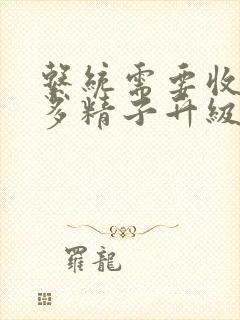 繫統需要收
多精子升級
羅龍